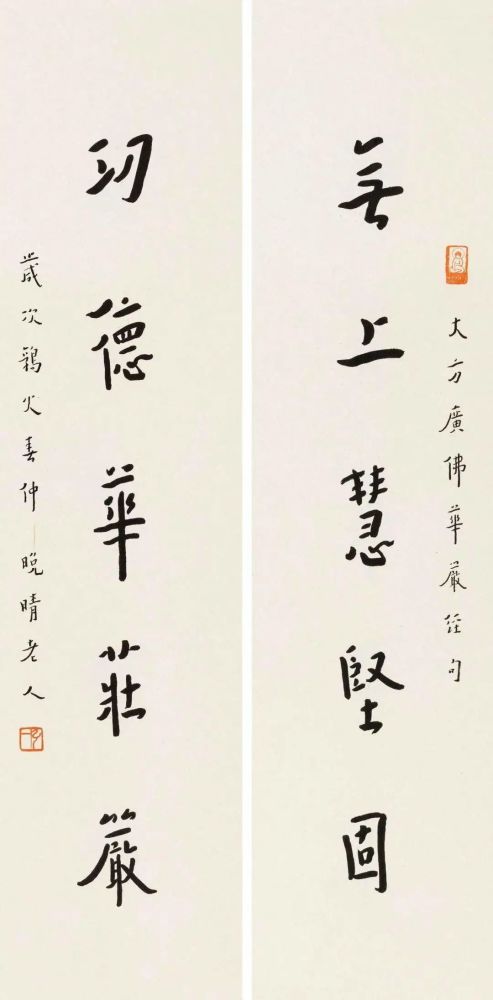 大方廣佛華嚴經句
無上慧堅固
功德華莊嚴
歲次鶉火春仲晚晴老人